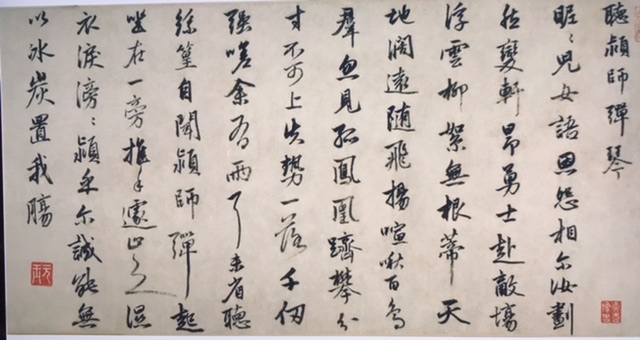 聽穎師彈琴
昵〻兒女語恩怨相尔汝劃
然變軒昂勇士赴敵場
浮雲柳絮無根蒂天
地濶遠隨飛揚喧啾百鳥
羣忽見孤鳳凰躋攀分
寸不可上失勢一落千仞
強嗟余有兩耳未省聽
絲篁自聞穎師彈起
坐在一旁推手遽止之濕
衣淚滂〻穎乎尔誠能無
以冰炭置我腸